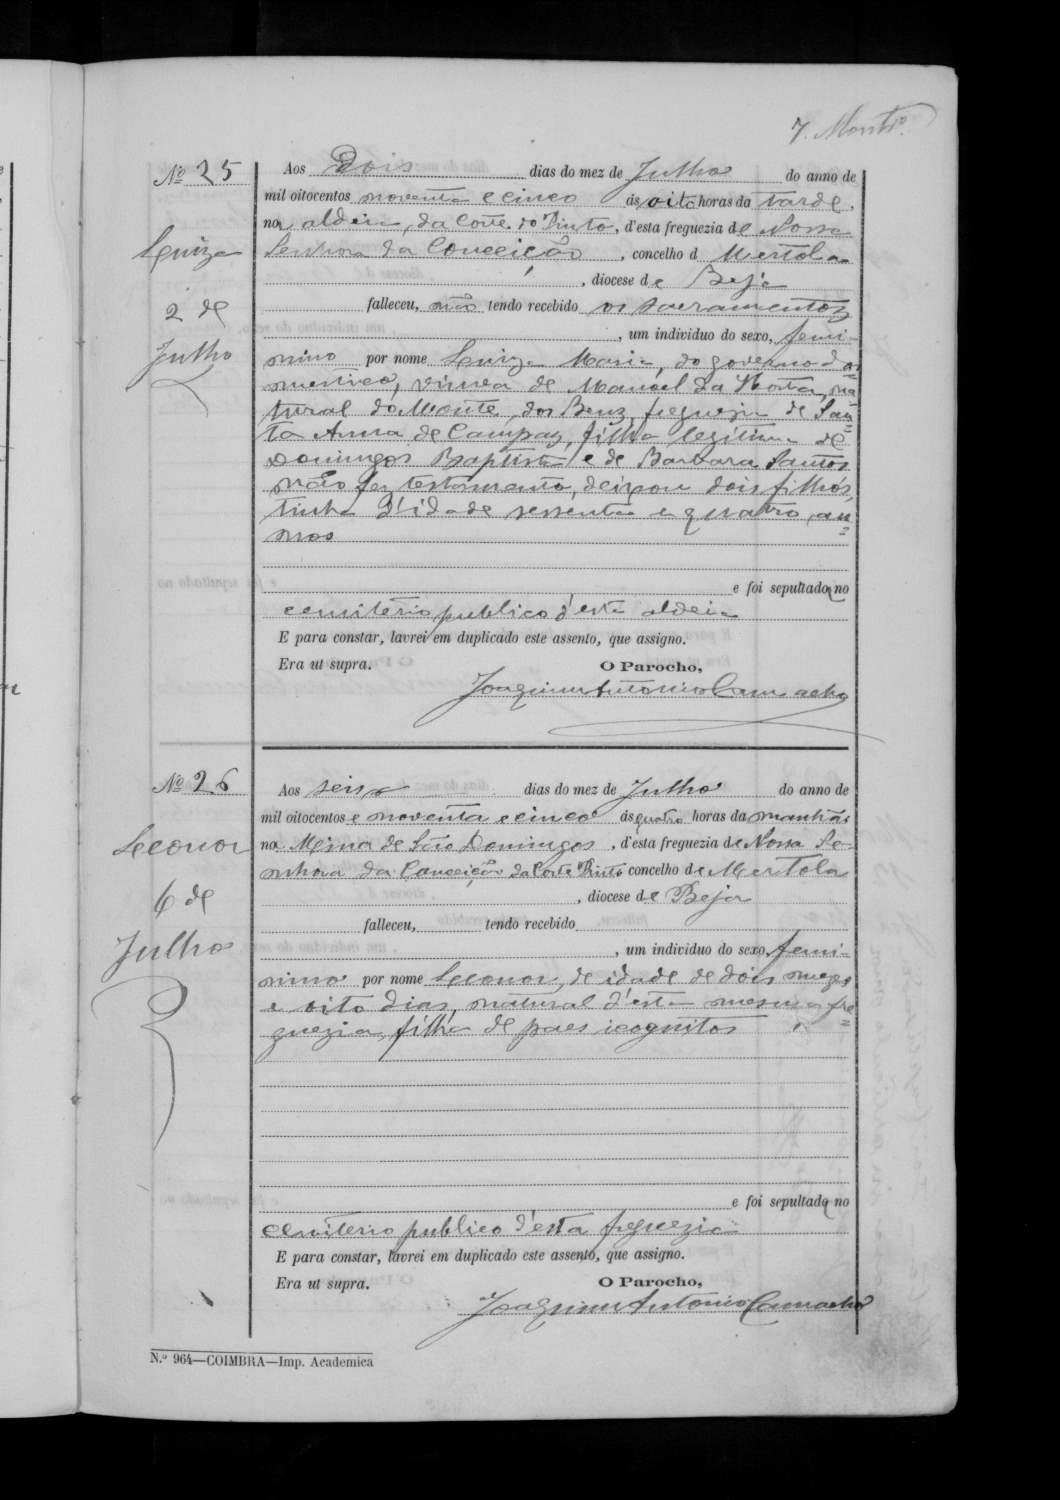 7. Montr.º
Nº 25
Aos Dois dias do mez de Julho do anno de
mil oitocentos noventa e cinco ás oito horas da tarde,
na aldeia da Corte do Pinto, d'esta freguezia de Nossa
Luiza
Senhora da Conceição, concelho d Mertola
, diocese de Beja
2 de
falleceu, não tendo recebido os sacramentos
, um individuo do sexo, femi-
Julho
nino por nome Luiza Maria, do governo do
mestico, viuva de Manoel da Horta, na=
tural do Monte dos Benz, freguezia de San=
ta Anna de Campaz, filha legitima de
Domingos Baptista e de Barbara Santos
não fez testamento, deixou dois filhos,
tinha d'idade sessenta e quatro an=
nos
e foi sepultada no
cemiterio publico d'esta aldeia
E para constar, lavrei em duplicado este assento, que assigno.
Era ut supra. O Parocho,
Joaquim Antonio Camacho
Nº 26
Aos seis dias do mez de Julho do anno de
mil oitocentos e noventa e cinco ás quatro horas da manhãa
Leonor
na Mina de São Domingos, d'esta freguezia de Nossa Se-
nhora da Conceição da Corte Pinto concelho de Mertola
6 de
, diocese de Beja
falleceu, tendo recebido
Julho
, um individuo do sexo, femi-
nino por nome Leonor, de idade de dois mezes
e oito dias, natural d'esta mesma fre=
guezia, filha de paes icognitos
e foi sepultada no
cemiterio publico d'esta freguezia
E para constar, lavrei em duplicado este assento, que assigno.
Era ut supra. O Parocho,
Joaquim Antonio Camacho
N.º 964—COIMBRA—Imp. Academica